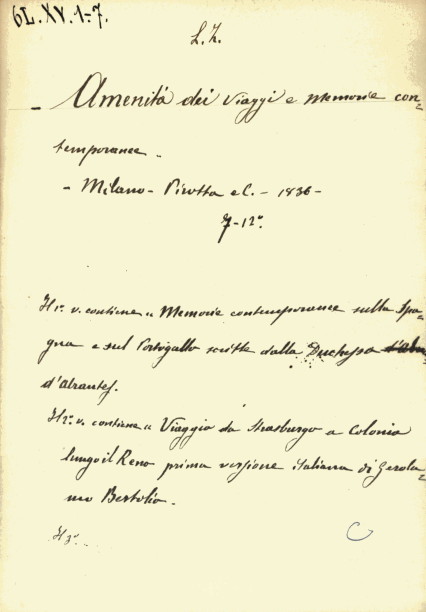 6L.XV.1-7.
L.Z.
- Amenità dei Viaggi e Memorie con=
temporanee -
- Milano - Pirotta e C. - 1836 -
7-12°.
Il 1° v. contiene "Memorie contemporanee sulla Spa=
gna e sul Portogallo scritte dalla Duchessa
d'Abrantes.
Il 2° v. contiene "Viaggio da Strasburgo a Colonia
lungo il Reno prima versione italiana di Gerola=
mo Bertolio.
Il 3°
C